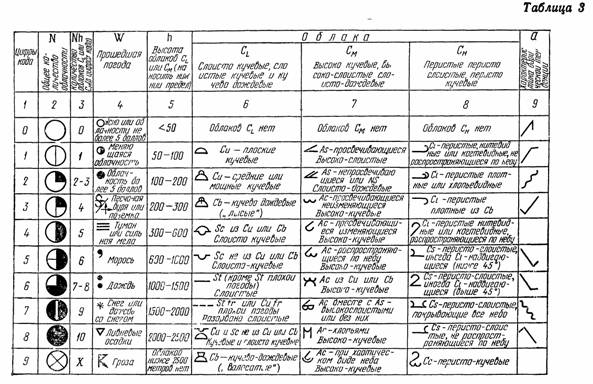 Таблица 3
Цифры кода
N
Общее количество облачности
Nh
W
Прошедшая погода
h
Высота облаков CL или CM (наносить нижний предел)
Облака
CL
Слоисто кучевые, слоистые кучевые и кучево дождевые
CM
Высоко кучевые, высоко-слоистые слоисто-дождевые
CH
Перистые перисто слоистые, перисто кучевые
a
1 2 3 4 5 6 7 8 9
0 0 Ясно или облачности не более 5 баллов <50 Облаков CL нет Облаков CM нет Облаков CH нет
1 1 Меняющаяся облачность 50-100 Cu - плоские кучевые As-просвечивающиеся Высоко-слоистые Ci-перистые нитевидные или когтевидные, не распространяющиеся по небу
2 2-3 Облачность более 5 баллов 100-200 Cu - средние или мощные кучевые As-непросвечивающиеся или NS Слоисто-дождевые Ci-перистые плотные или хлопьевидные
3 4 Песчаная буря или поземка 200-300 Cb - кучево дождевые („лысые") Ac-просвечивающиеся неизменяющиеся Высоко-кучевые Ci-перистые плотные из Cb
4 5 Туман или сильная мгла 300-600 Sc из Cu или Cb Слоисто кучевые Ac-просвечивающиеся изменяющиеся Высоко-кучевые Ci-перистые нитевидные или когтевидные, распространяющиеся по небу
5 6 Морось 600-1000 Sc не из Cu или Cb Слоисто-кучевые Ac-распространяющиеся по небу Высоко-кучевые Cs-перисто-слоистые, иногда Ci-надвигающиеся (ниже 45°)
6 7-8 Дождь 1000-1500 St (кроме St плохой погоды) Слоистые Ac из Cu или Cb Высоко-кучевые Cs-перисто-слоистые, иногда Ci-надвигающиеся (выше 45°)
7 9 Снег или дождь со снегом 1500-2000 St fr или Cu fr плохой погоды Разорванно слоистые Ac вместе с As-высокослоистыми или без них Cs-перисто-слоистые, покрывающие все небо
8 10 Ливневые осадки 2000-2500 Cu и Sc не из Cu или Cb Кучевые и слоисто кучевые Ac-хлопьями Высоко-кучевые Cs-перисто слоистые, не распространяющиеся по небу
9 X Гроза Облаков ниже 2500 метров нет Cb - кучево-дождевые Ac-при хаотическом виде неба Высоко-кучевые Cc-перисто-кучевые